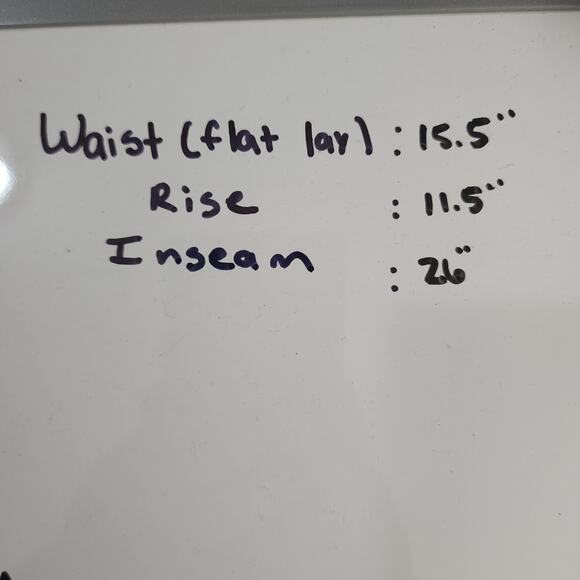 Waist (flat lay) : 15.5"
Rise : 11.5"
Inseam : 26"